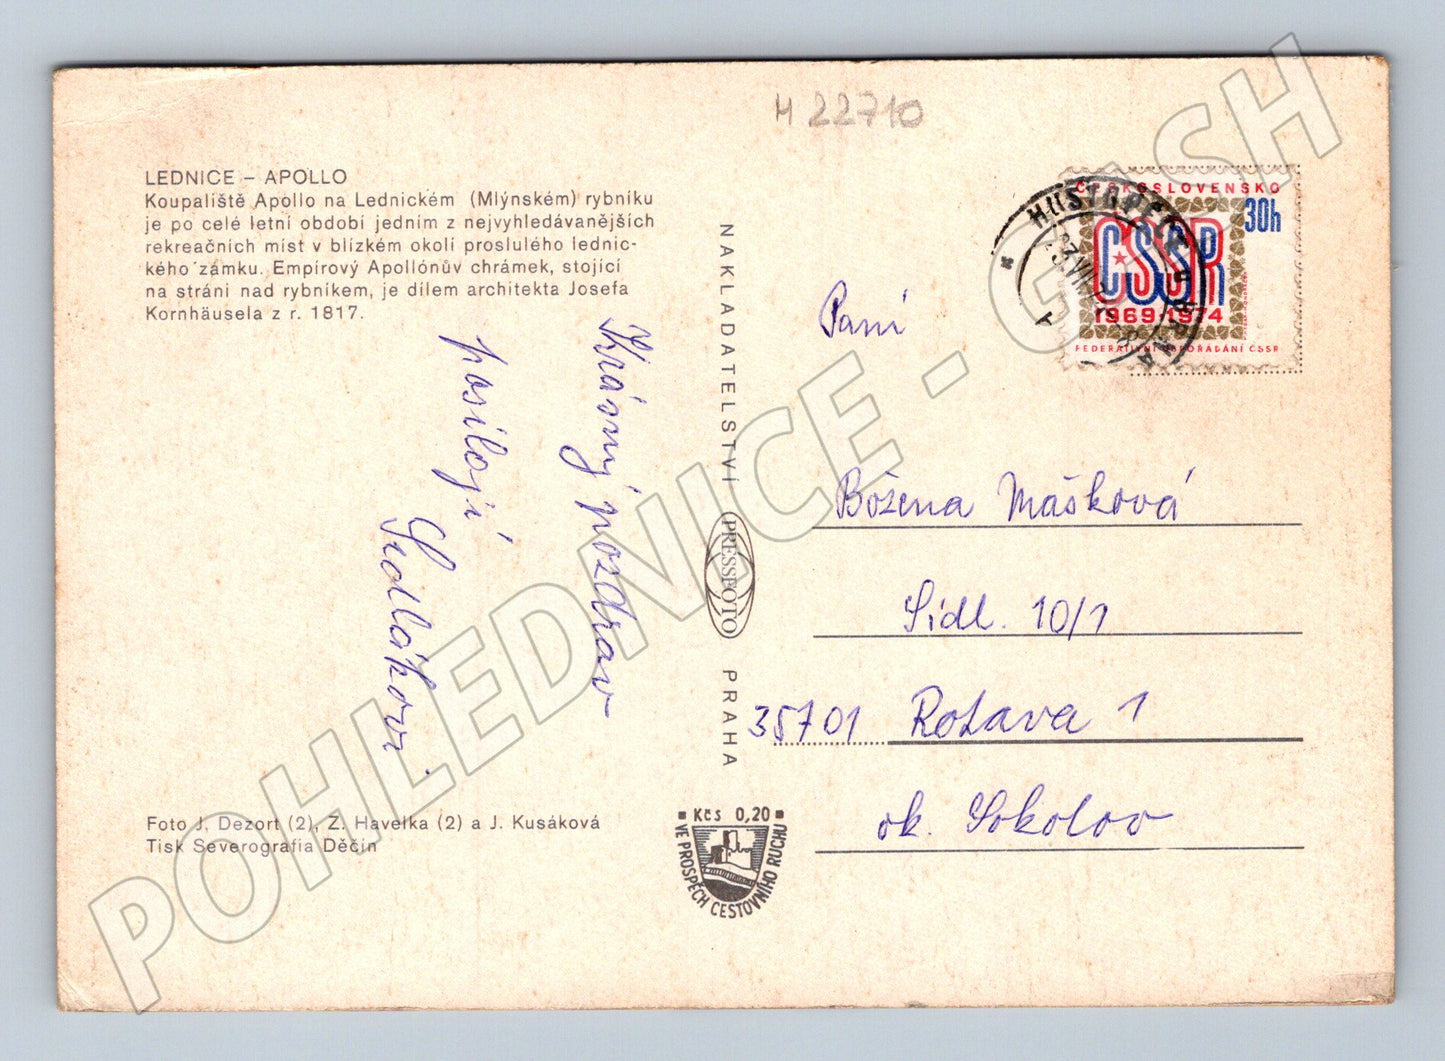 H 22710
LEDNICE – APOLLO
Koupaliště Apollo na Lednickém (Mlýnském) rybníku
je po celé letní období jedním z nejvyhledávanějších
rekreačních míst v blízkém okolí proslulého lednic-
kého zámku. Empírový Apollónův chrámek, stojící
na stráni nad rybníkem, je dílem architekta Josefa
Kornhäusela z r. 1817.
Krásný pozdrav
posílají
Sedlákovi.
Foto J. Dezort (2), Z. Havelka (2) a J. Kusáková
Tisk Severografia Děčín
NAKLADATELSTVÍ
PRESSFOTO
PRAHA
Kčs 0,20
VE PROSPĚCH CESTOVNÍHO RUCHU
ČESKOSLOVENSKO
30h
ČSSR
1969-1974
FEDERATIVNÍ USPOŘÁDÁNÍ ČSSR
HUSTOPEČE U BRNA
Paní
Božena Mášková
Sídl. 10/1
35701 Rotava 1
ok. Sokolov
POHLEDNICE - GASH